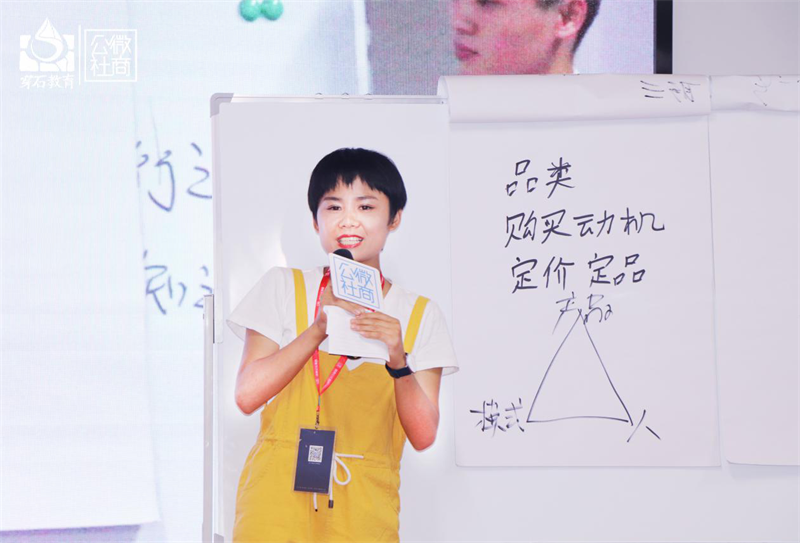 穿石教育
微商
公社
品类
购买动机
定价 定品
模式
人
微商
公社